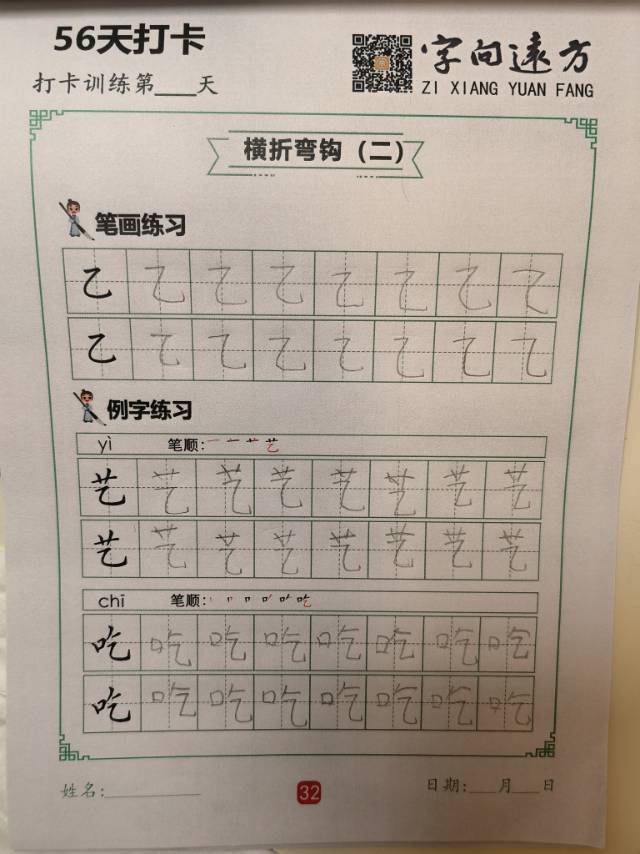 56天打卡
字向远方
打卡训练第____天
ZI XIANG YUAN FANG
横折弯钩（二）
笔画练习
乙 乙 乙 乙 乙 乙 乙 乙
乙 乙 乙 乙 乙 乙 乙 乙
例字练习
yì 笔顺：一 艹 艺
艺 艺 艺 艺 艺 艺 艺 艺
艺 艺 艺 艺 艺 艺 艺 艺
chī 笔顺：吃
吃 吃 吃 吃 吃 吃 吃 吃
吃 吃 吃 吃 吃 吃 吃 吃
姓名：__________ 32 日期：___月___日